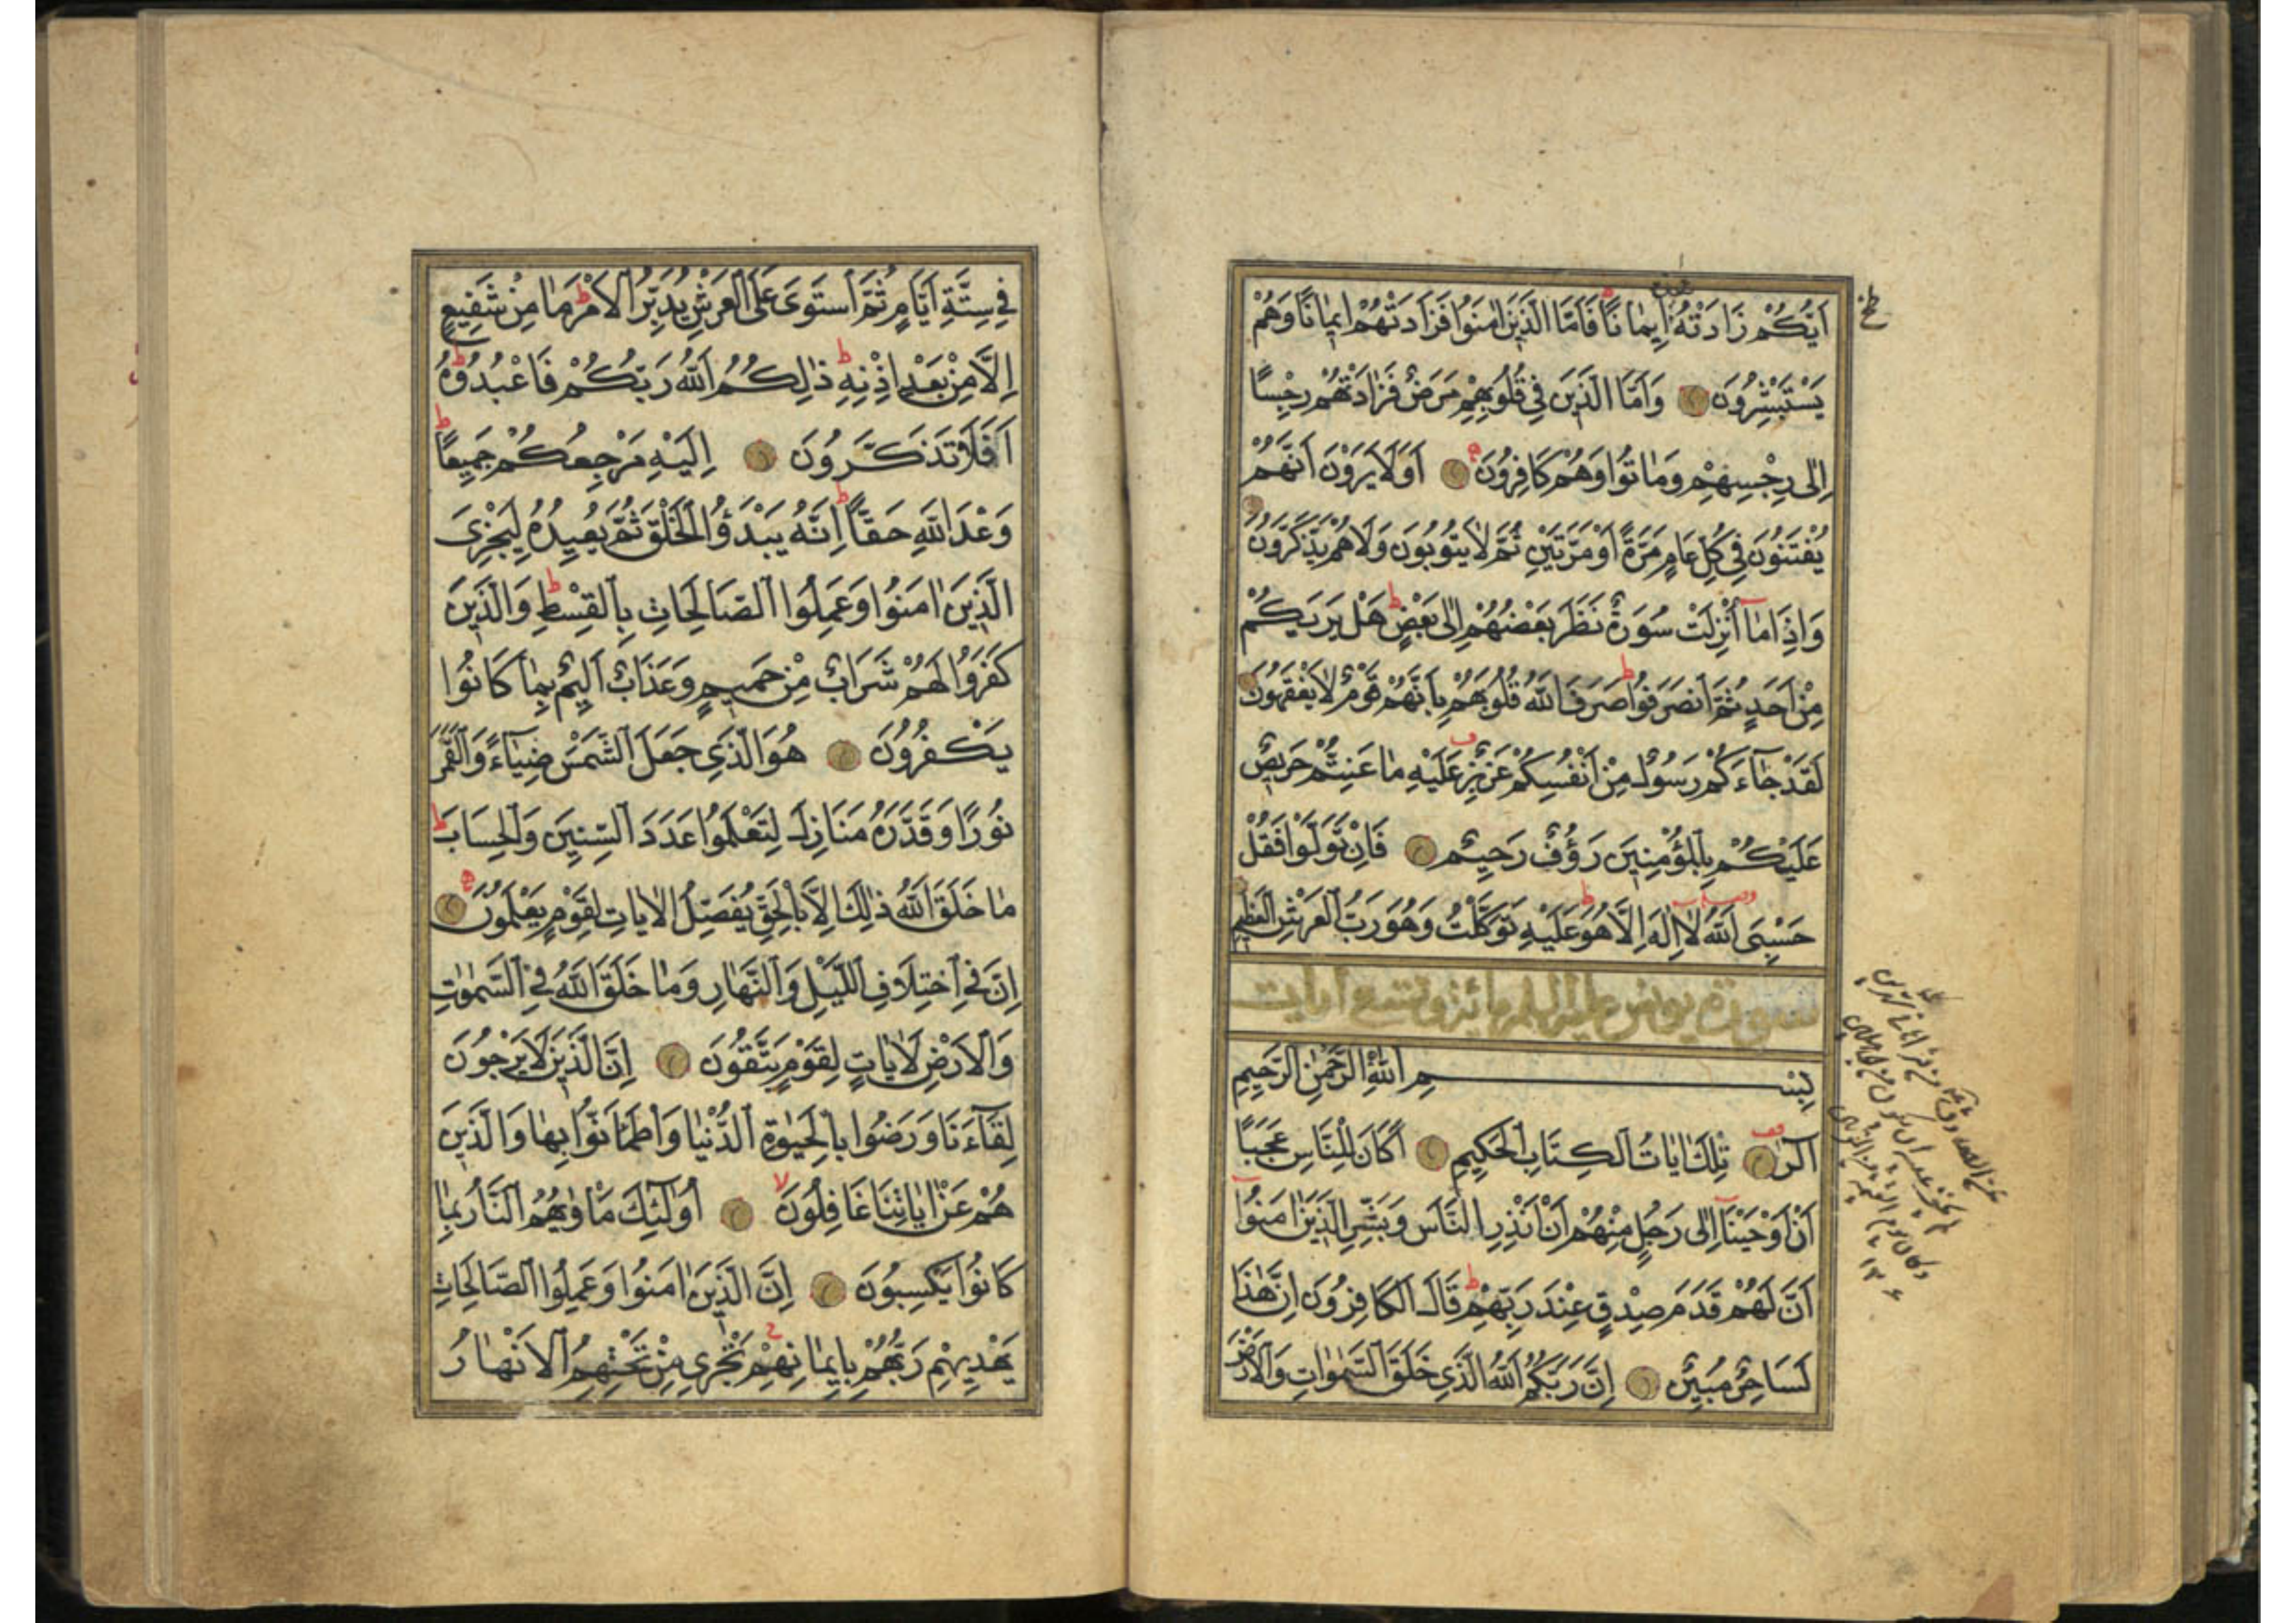 اَيُّكُمْ زَادَتْهُ اِيمَانًا فَاَمَّا الَّذِينَ اٰمَنُوا فَزَادَتْهُمْ اِيمَانًا وَهُمْ
يَسْتَبْشِرُونَ وَاَمَّا الَّذِينَ فِي قُلُوبِهِمْ مَرَضٌ فَزَادَتْهُمْ رِجْسًا
اِلٰى رِجْسِهِمْ وَمَاتُوا وَهُمْ كَافِرُونَ اَوَلَا يَرَوْنَ اَنَّهُمْ
يُفْتَنُونَ فِي كُلِّ عَامٍ مَرَّةً اَوْ مَرَّتَيْنِ ثُمَّ لَا يَتُوبُونَ وَلَا هُمْ يَذَّكَّرُونَ
وَاِذَا مَا اُنْزِلَتْ سُورَةٌ نَظَرَ بَعْضُهُمْ اِلٰى بَعْضٍ هَلْ يَرٰيكُمْ
مِنْ اَحَدٍ ثُمَّ انْصَرَفُوا صَرَفَ اللّٰهُ قُلُوبَهُمْ بِاَنَّهُمْ قَوْمٌ لَا يَفْقَهُونَ
لَقَدْ جَاءَكُمْ رَسُولٌ مِنْ اَنْفُسِكُمْ عَزِيزٌ عَلَيْهِ مَا عَنِتُّمْ حَرِيصٌ
عَلَيْكُمْ بِالْمُؤْمِنِينَ رَؤُفٌ رَحِيمٌ فَاِنْ تَوَلَّوْا فَقُلْ
حَسْبِيَ اللّٰهُ لَا اِلٰهَ اِلَّا هُوَ عَلَيْهِ تَوَكَّلْتُ وَهُوَ رَبُّ الْعَرْشِ الْعَظِيمِ
سورة يونس عليه السلم مائة وتسع ايات
بِسْمِ اللّٰهِ الرَّحْمٰنِ الرَّحِيمِ
الٓرٰ تِلْكَ اٰيَاتُ الْكِتَابِ الْحَكِيمِ اَكَانَ لِلنَّاسِ عَجَبًا
اَنْ اَوْحَيْنَا اِلٰى رَجُلٍ مِنْهُمْ اَنْ اَنْذِرِ النَّاسَ وَبَشِّرِ الَّذِينَ اٰمَنُوا
اَنَّ لَهُمْ قَدَمَ صِدْقٍ عِنْدَ رَبِّهِمْ قَالَ الْكَافِرُونَ اِنَّ هٰذَا
لَسَاحِرٌ مُبِينٌ اِنَّ رَبَّكُمُ اللّٰهُ الَّذِي خَلَقَ السَّمٰوَاتِ وَالْاَرْضَ
فِي سِتَّةِ اَيَّامٍ ثُمَّ اسْتَوٰى عَلَى الْعَرْشِ يُدَبِّرُ الْاَمْرَ مَا مِنْ شَفِيعٍ
اِلَّا مِنْ بَعْدِ اِذْنِهِ ذٰلِكُمُ اللّٰهُ رَبُّكُمْ فَاعْبُدُوهُ
اَفَلَا تَذَكَّرُونَ اِلَيْهِ مَرْجِعُكُمْ جَمِيعًا
وَعْدَ اللّٰهِ حَقًّا اِنَّهُ يَبْدَؤُا الْخَلْقَ ثُمَّ يُعِيدُهُ لِيَجْزِيَ
الَّذِينَ اٰمَنُوا وَعَمِلُوا الصَّالِحَاتِ بِالْقِسْطِ وَالَّذِينَ
كَفَرُوا لَهُمْ شَرَابٌ مِنْ حَمِيمٍ وَعَذَابٌ اَلِيمٌ بِمَا كَانُوا
يَكْفُرُونَ هُوَ الَّذِي جَعَلَ الشَّمْسَ ضِيَاءً وَالْقَمَرَ
نُورًا وَقَدَّرَهُ مَنَازِلَ لِتَعْلَمُوا عَدَدَ السِّنِينَ وَالْحِسَابَ
مَا خَلَقَ اللّٰهُ ذٰلِكَ اِلَّا بِالْحَقِّ يُفَصِّلُ الْاٰيَاتِ لِقَوْمٍ يَعْلَمُونَ
اِنَّ فِي اخْتِلَافِ اللَّيْلِ وَالنَّهَارِ وَمَا خَلَقَ اللّٰهُ فِي السَّمٰوَاتِ
وَالْاَرْضِ لَاٰيَاتٍ لِقَوْمٍ يَتَّقُونَ اِنَّ الَّذِينَ لَا يَرْجُونَ
لِقَاءَنَا وَرَضُوا بِالْحَيٰوةِ الدُّنْيَا وَاطْمَاَنُّوا بِهَا وَالَّذِينَ
هُمْ عَنْ اٰيَاتِنَا غَافِلُونَ اُولٰئِكَ مَاْوٰيهُمُ النَّارُ بِمَا
كَانُوا يَكْسِبُونَ اِنَّ الَّذِينَ اٰمَنُوا وَعَمِلُوا الصَّالِحَاتِ
يَهْدِيهِمْ رَبُّهُمْ بِاِيمَانِهِمْ تَجْرِي مِنْ تَحْتِهِمُ الْاَنْهَارُ